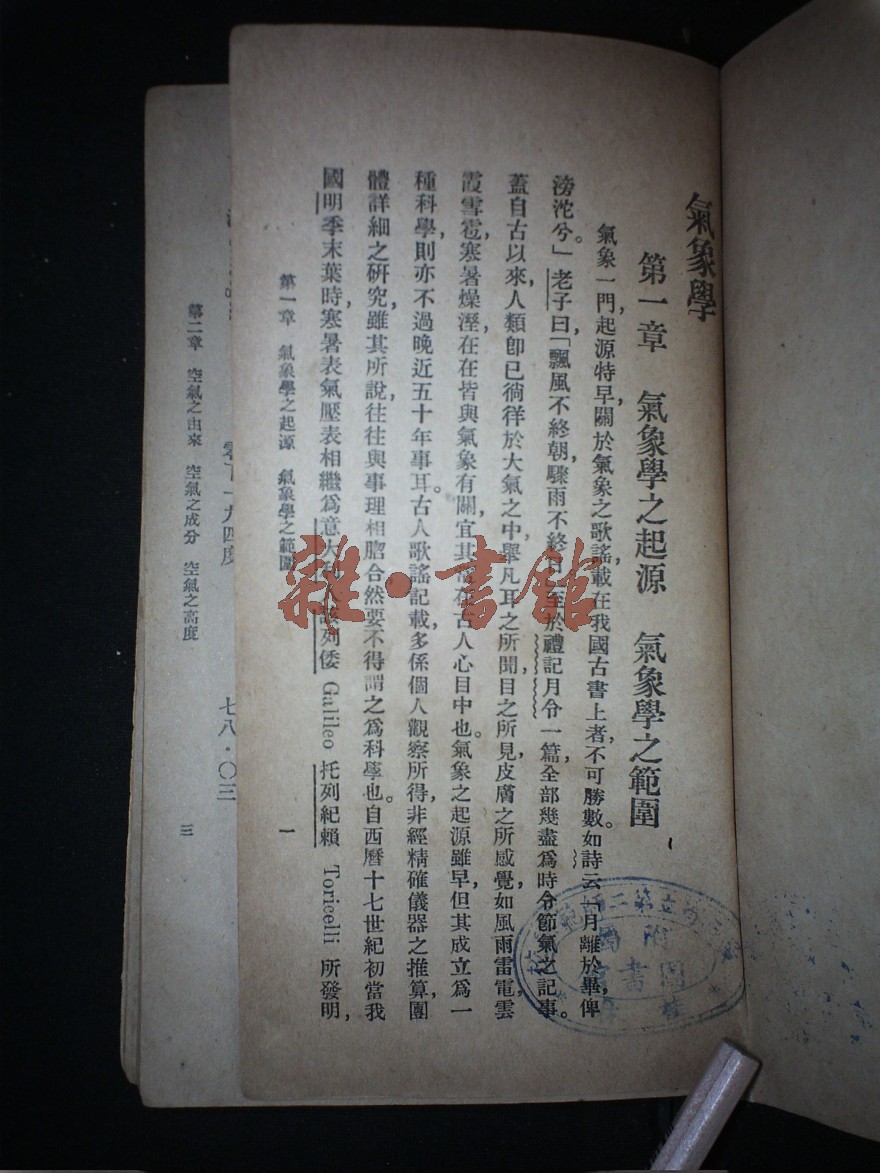 氣象學
第一章　氣象學之起源　氣象學之範圍
氣象一門，起源特早，關於氣象之歌謠，載在我國古書上者，不可勝數。如詩云「月離於畢，俾
滂沱兮。」老子曰「飄風不終朝，驟雨不終日。」至於禮記月令一篇，全部幾盡爲時令節氣之記事。
蓋自古以來，人類卽已徜徉於大氣之中，舉凡耳之所聞，目之所見，皮膚之所感覺，如風雨雷電雲
霞雪雹，寒暑燥溼，在在皆與氣象有關，宜其古人心目中也。氣象之起源雖早，但其成立爲一
種科學，則亦不過晚近五十年事耳。古人歌謠記載，多係個人觀察所得，非經精確儀器之推算，團
體詳細之研究，雖其所說，往往與事理相脗合，然要不得謂之爲科學也。自西曆十七世紀初，當我
國明季末葉時，寒暑表氣壓表相繼爲意大利列倭 Galileo 托列紀賴 Toricelli 所發明，
第一章　氣象學之起源　氣象學之範圍
一
零下一九四度
七八·〇三
第二章　空氣之由來　空氣之成分　空氣之高度
三
雜·書館
圖書